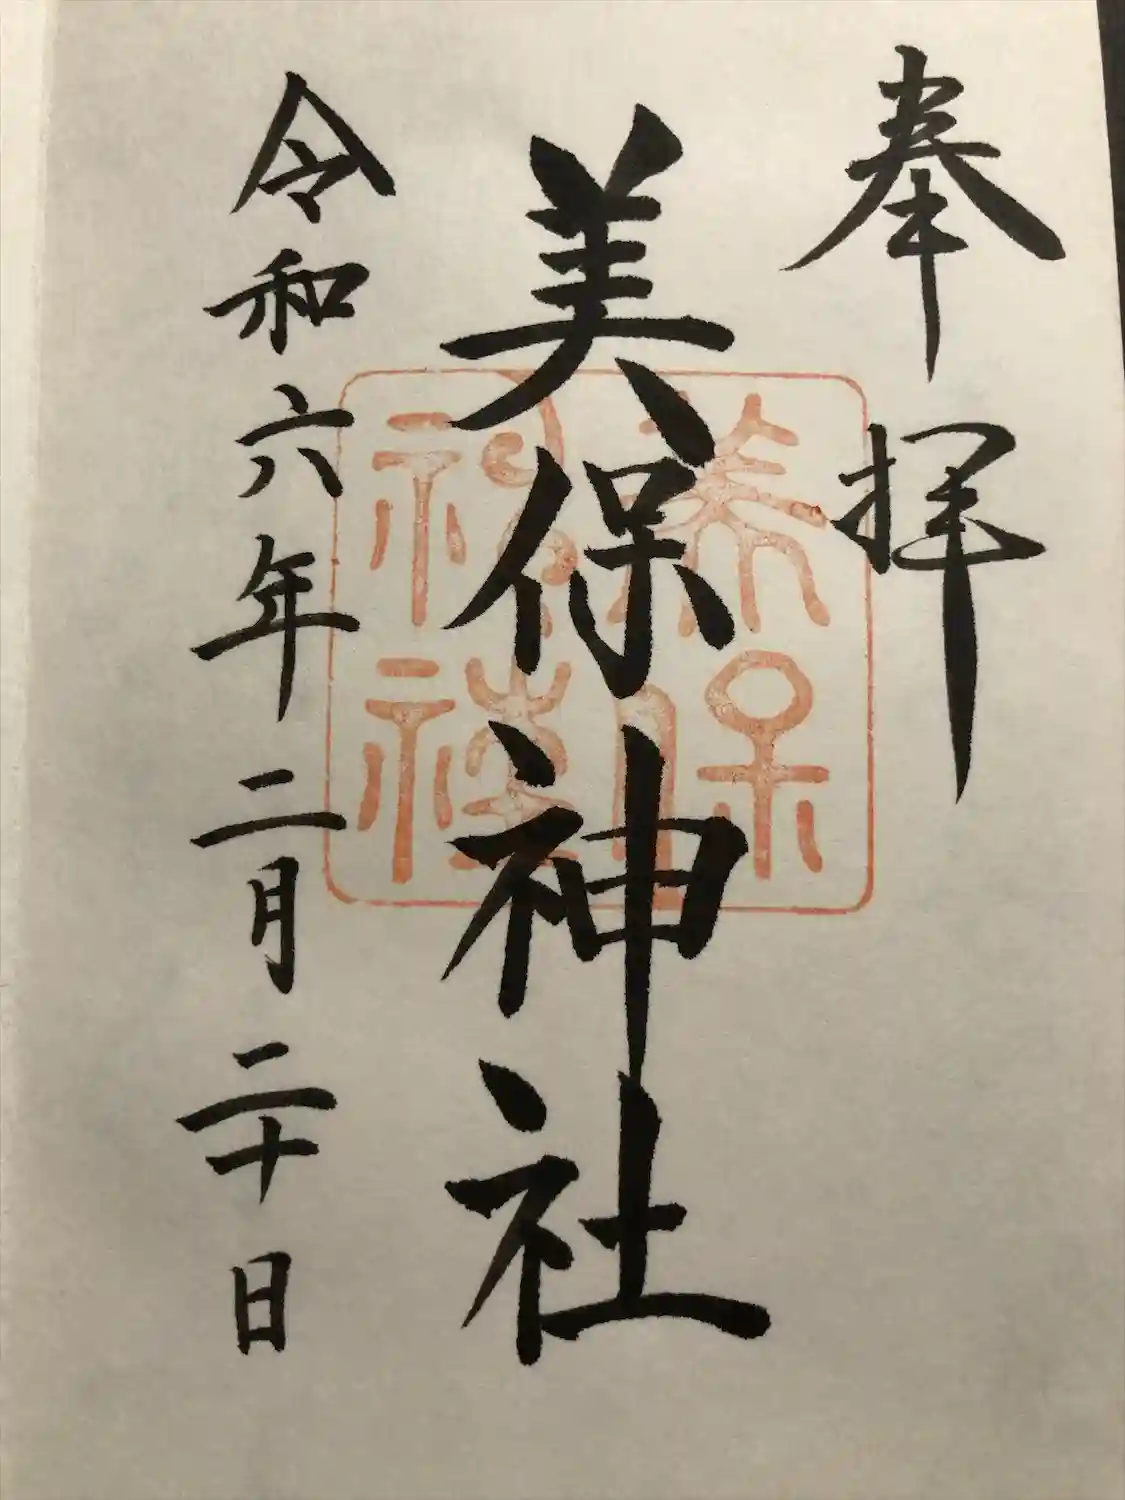 奉拝
美保神社
美保神社
令和六年二月二十日